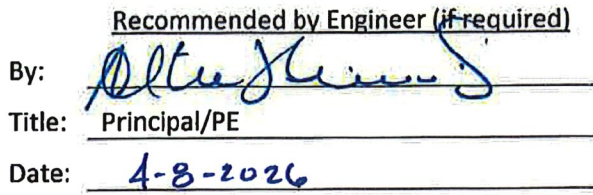 Recommended by Engineer (if required)
By:
Title: Principal/PE
Date: 4-8-2026